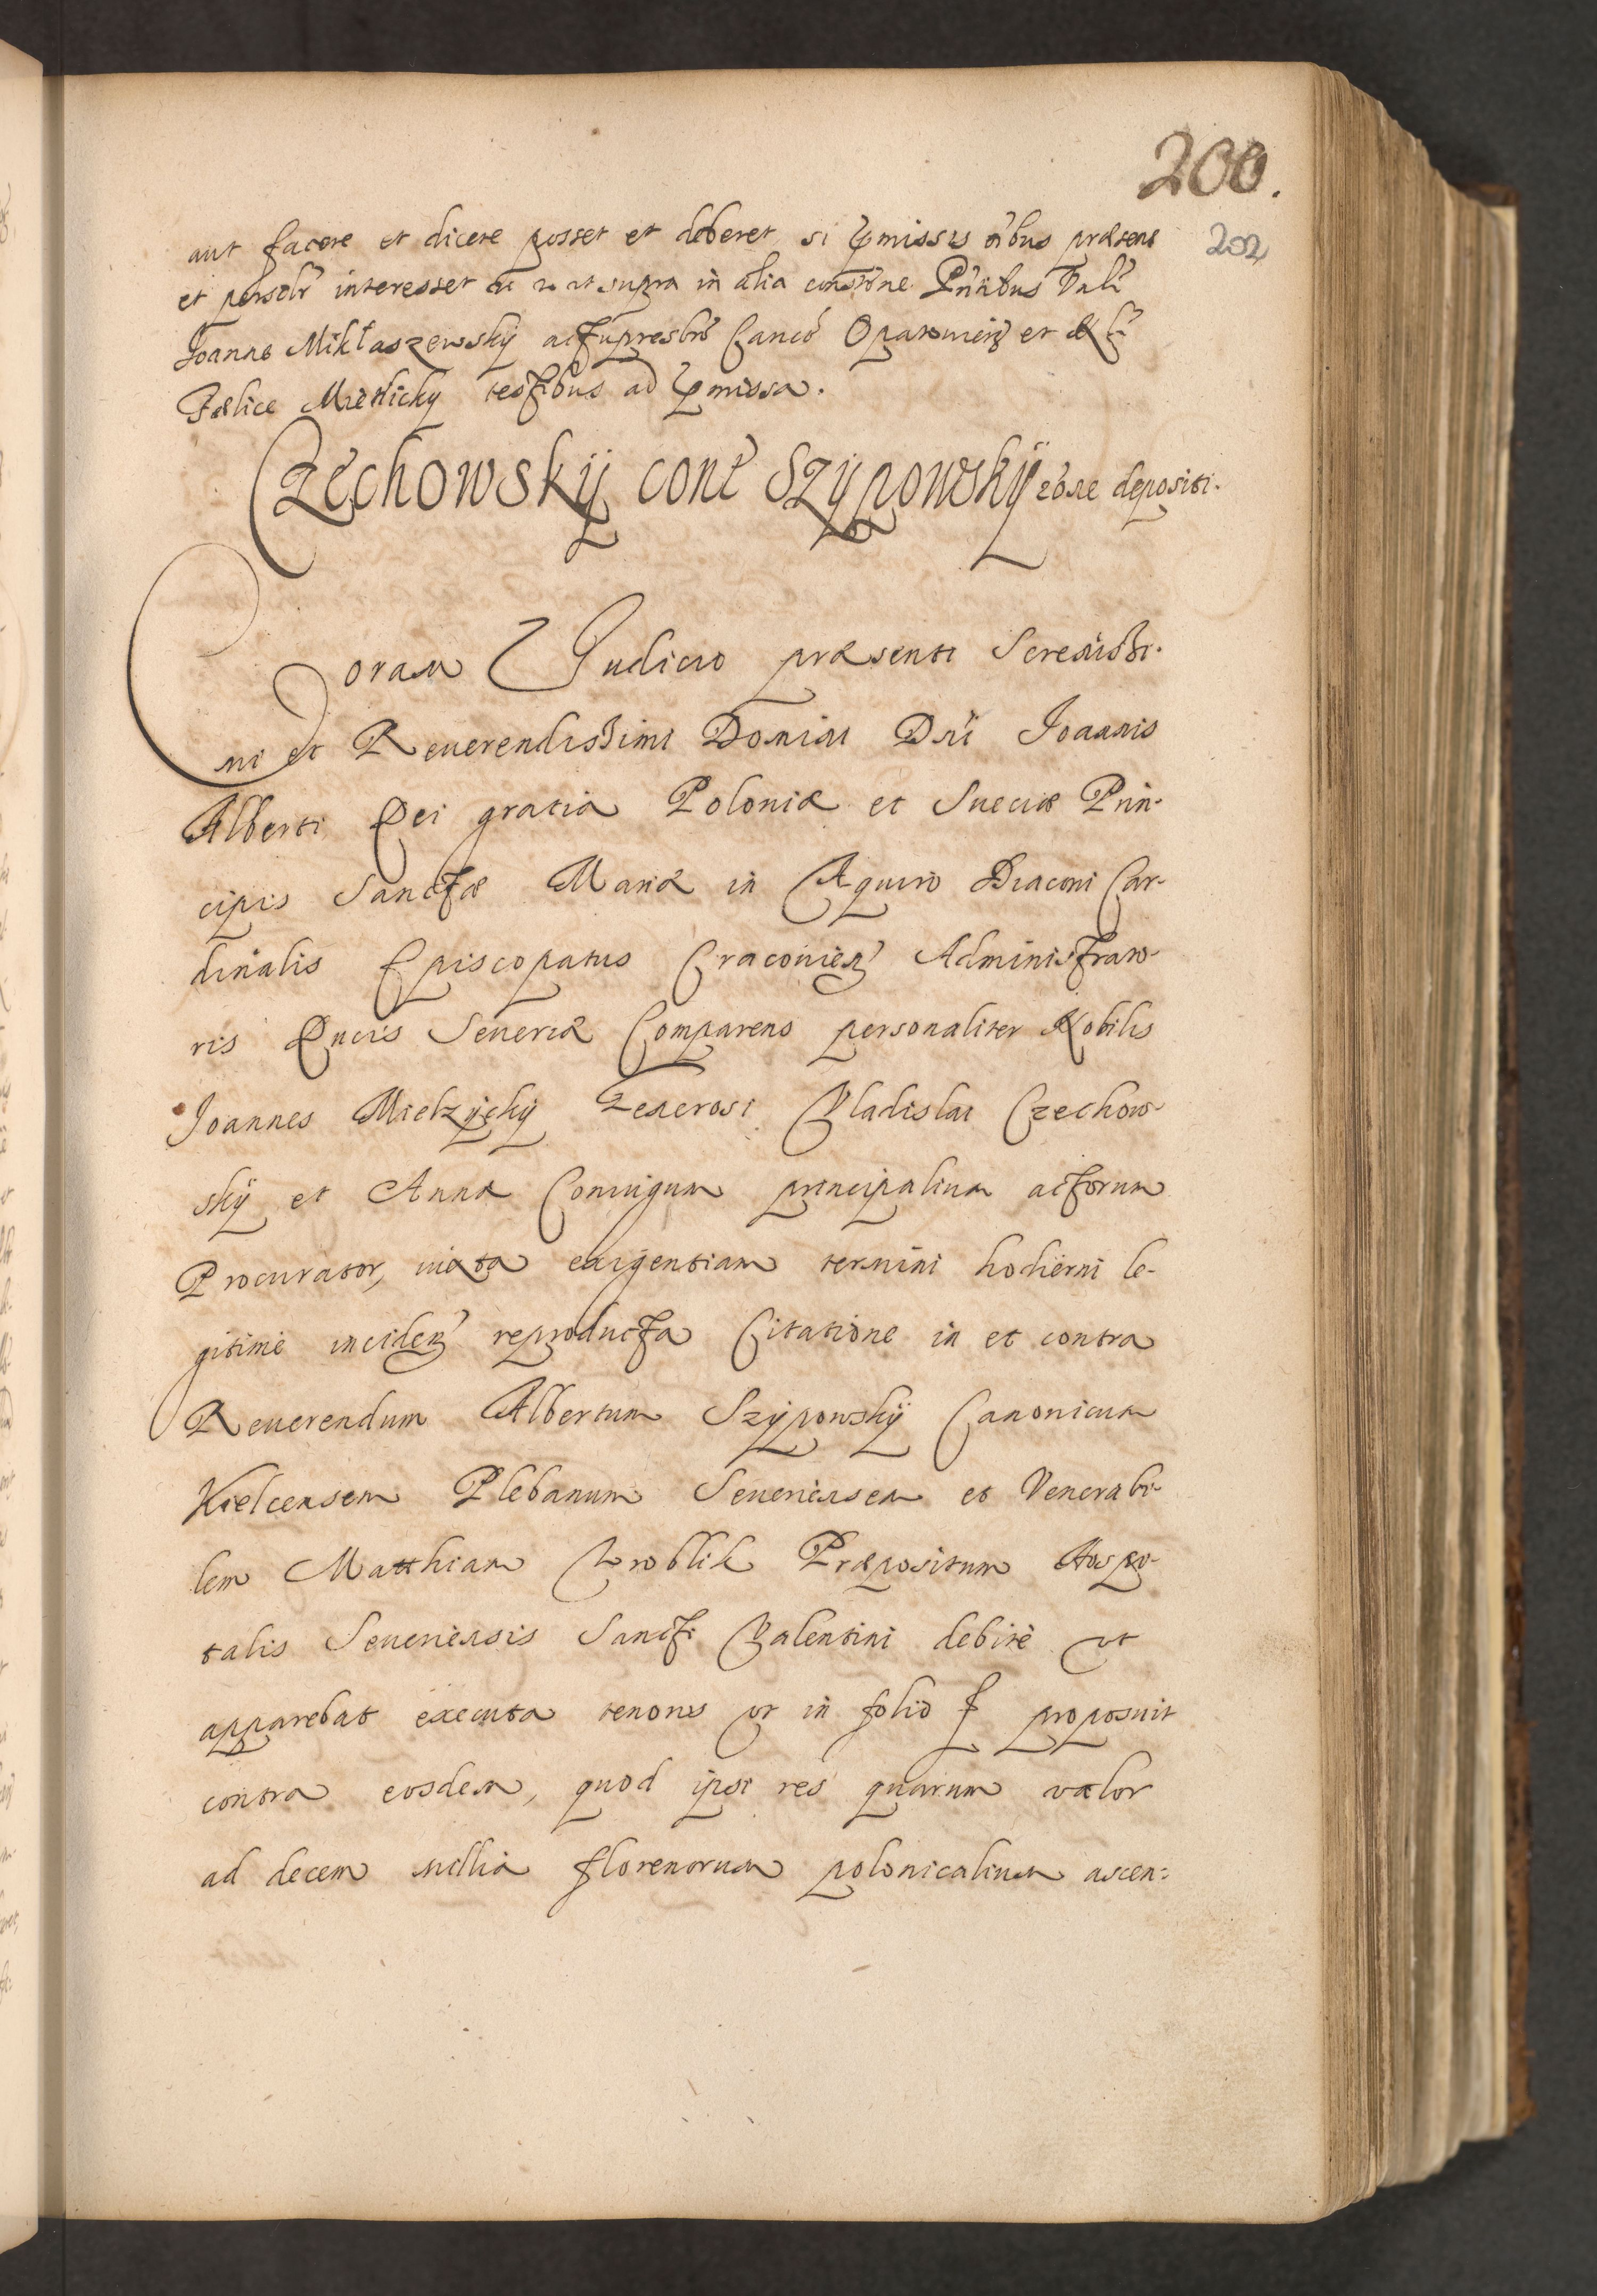 200.
202
aut facere et dicere posset et deberet, si p̱missis oĩbus præsens
et persolr̃ interesset ut supra in alia constõne. Pñtibus Valĩ
Joanne Mikłaszewskÿ Opatouieñ et
Fælice Mietlicky testibus ad p̱missa.
Czechowskÿ cont̃ Szÿpowskÿ rõne depositi.
Coram Judicio præsenti Sereniss̃i-
mi et Reuerendissimi Domini Dñi Joannis
Alberti Dei gratia Poloniæ et Sueciæ Prin-
cipis Sanctæ Mariæ in Aquiro Diaconi Car-
dinalis Episcopatus Cracouieñ Administrato-
ris Ducis Seueriæ Comparens personaliter Nobilis
Joannes Mielzÿcky Generosi Vladislai Czechow-
skÿ et Annæ Coniugum principalium actorum
Procurator, iuxta exigentiam termini hodierni le-
gitimè incideñ reproducta Citatione in et contra
Reuerendum Albertum Szÿpowskÿ Canonicum
Kielcensem Plebanum Seueriensem et Venerabi-
lem Matthiam Wroblik Præpositum Hospi-
talis Seueriensis Sancti Valentini debitè ut
apparebat executa tenoris ut in folio f proposuit
contra eosdem, quod ipsi res quarum valor
ad decem millia florenorum polonicalium ascen-